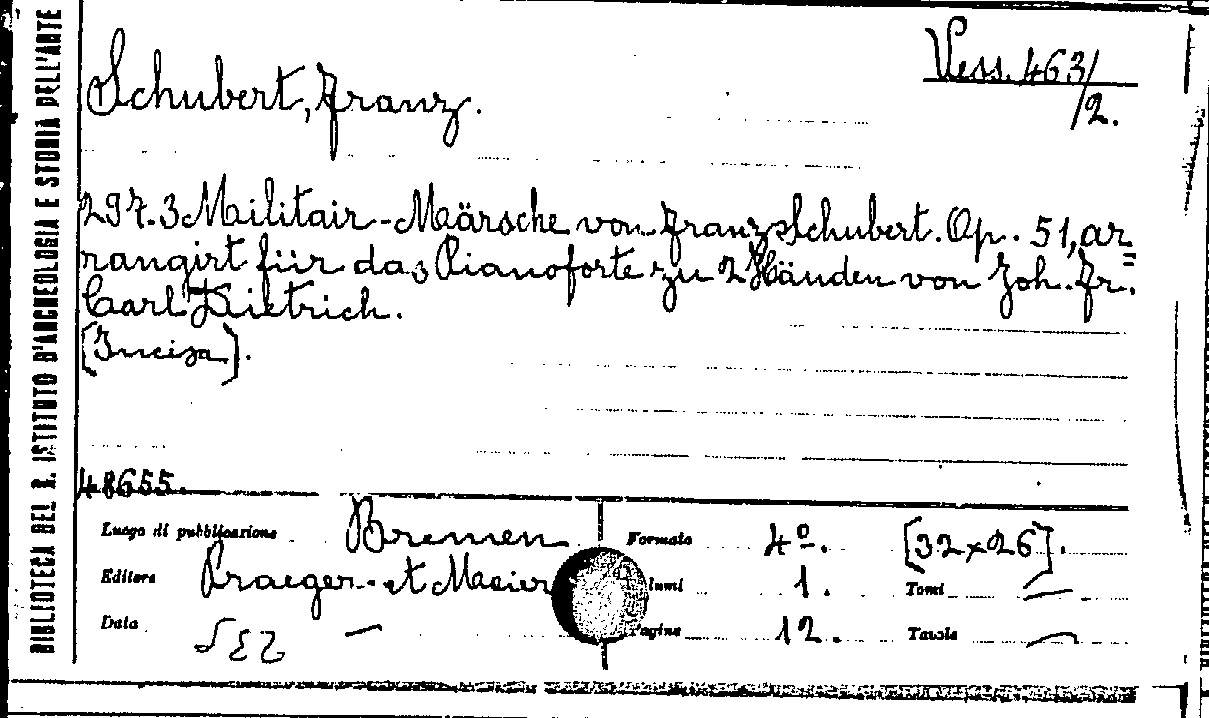 BIBLIOTECA DEL R. ISTITUTO D'ARCHEOLOGIA E STORIA DELL'ARTE
Vess. 463/
/2.
Schubert, Franz.
297. 3 Militair-Maärsche von Franz Schubert. Op. 51, ar=
rangirt für das Pianoforte zu 2 Händen von Joh. Fr.
Carl Dietrich.
(Incisa).
48655.
Luogo di pubblicazione Bremen Formato 4º. [32×26].
Editore Praeger et Meier Volumi 1. Tomi —
Data — Pagine 12. Tavole —